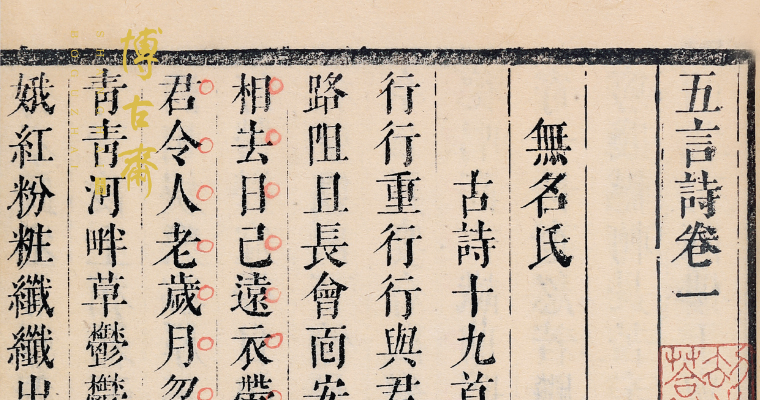 五言詩卷一
無名氏
古詩十九首
行行重行行與君
路阻且長會面安
相去日已遠衣帶
君令人老歲月忽
青青河畔草鬱鬱
娥紅粉粧纖纖出
博古齋